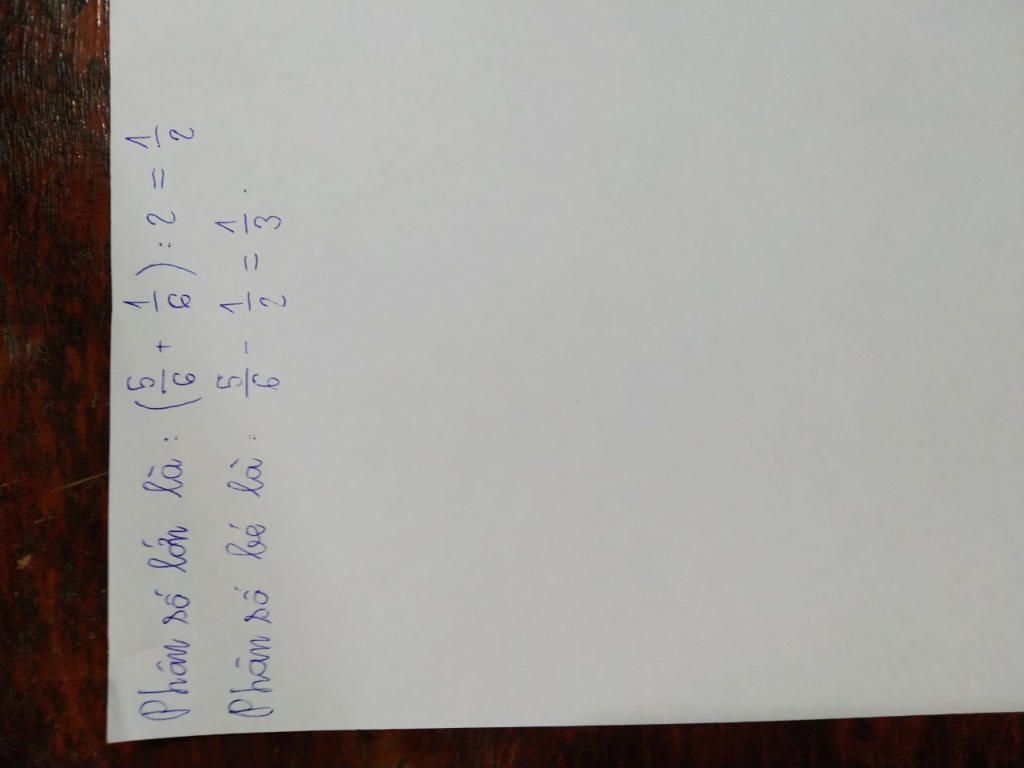 Phân số lớn là : (5/6 + 1/6) : 2 = 1/2
Phân số bé là : 5/6 - 1/2 = 1/3 .